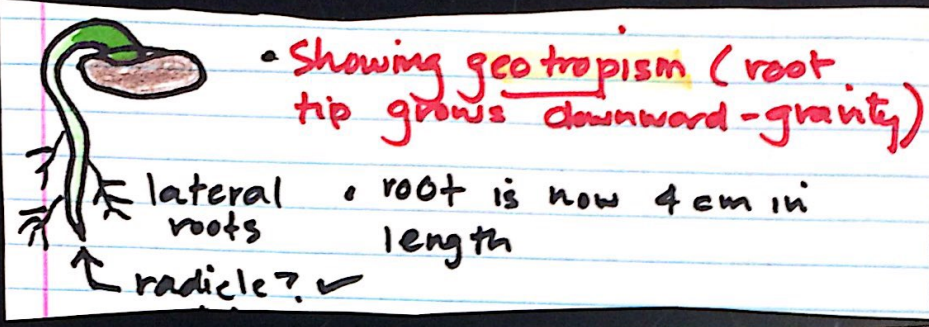 • Showing geotropism (root
tip grows downward-gravity)
lateral
roots
• root is now 4 cm in
length
radicle? ✓